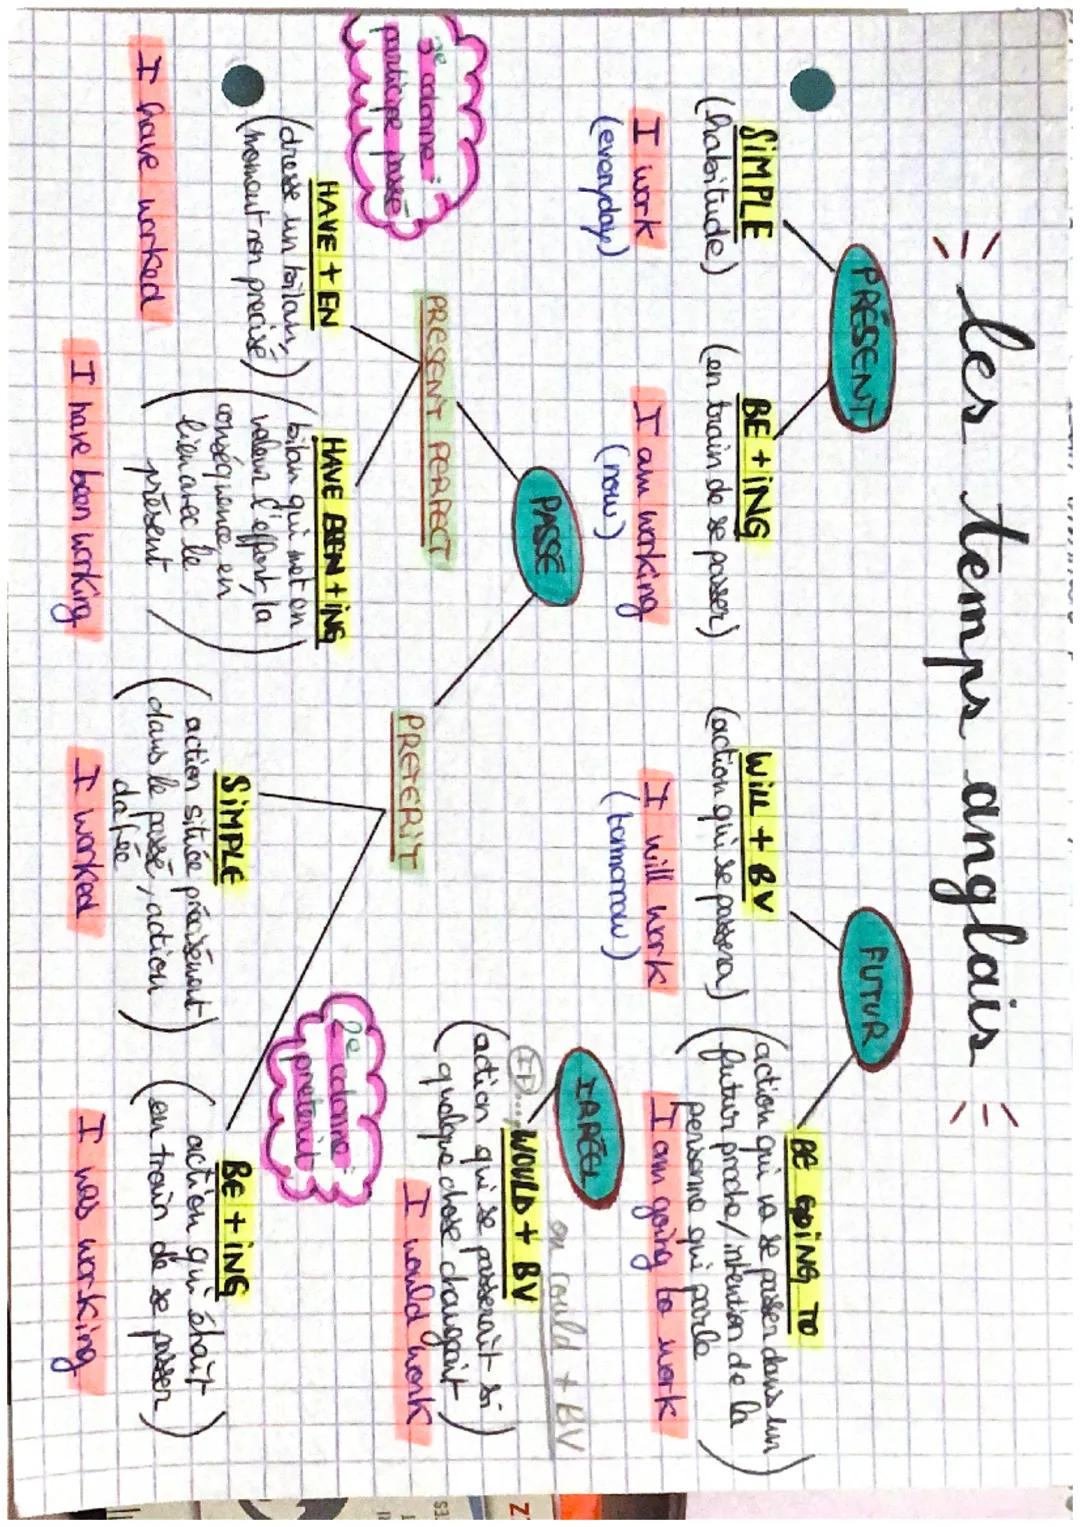 Les temps anglais
PRÉSENT
SiMPLE
(habitude)
I work
(everyday)
BE + iNG
(en train de se passer)
I am working
(now)
FUTUR
WiLL + BV
(action qui se passera)
I will work
(tommorow)
BE GOiNG TO
(action qui va se passer dans un
futur proche/intention de la
personne qui parle)
I am going to work
PASSÉ
PRESENT PERFECT
3e colonne :
participe passé
HAVE + EN
(dresse un bilan,
moment non precisé)
I have worked
HAVE BEEN + iNG
(bilan qui met en
valeur l'effort, la
conséquence, en
lien avec le
présent)
I have been working
PRETERIT
SiMPLE
(action située précisément
dans le passé, action
datée)
I worked
2e colonne :
preterit
BE + iNG
(action qui était
en train de se passer)
I was working
IRRÉEL
(If)..., WOULD + BV
ou could + BV
(action qui se passerait si
quelque chose changeait)
I would work